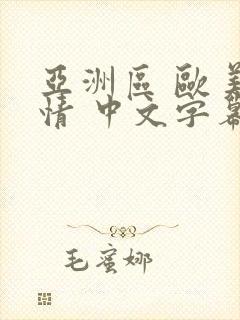 亞洲區 歐美
情 中文字幕
毛蜜娜